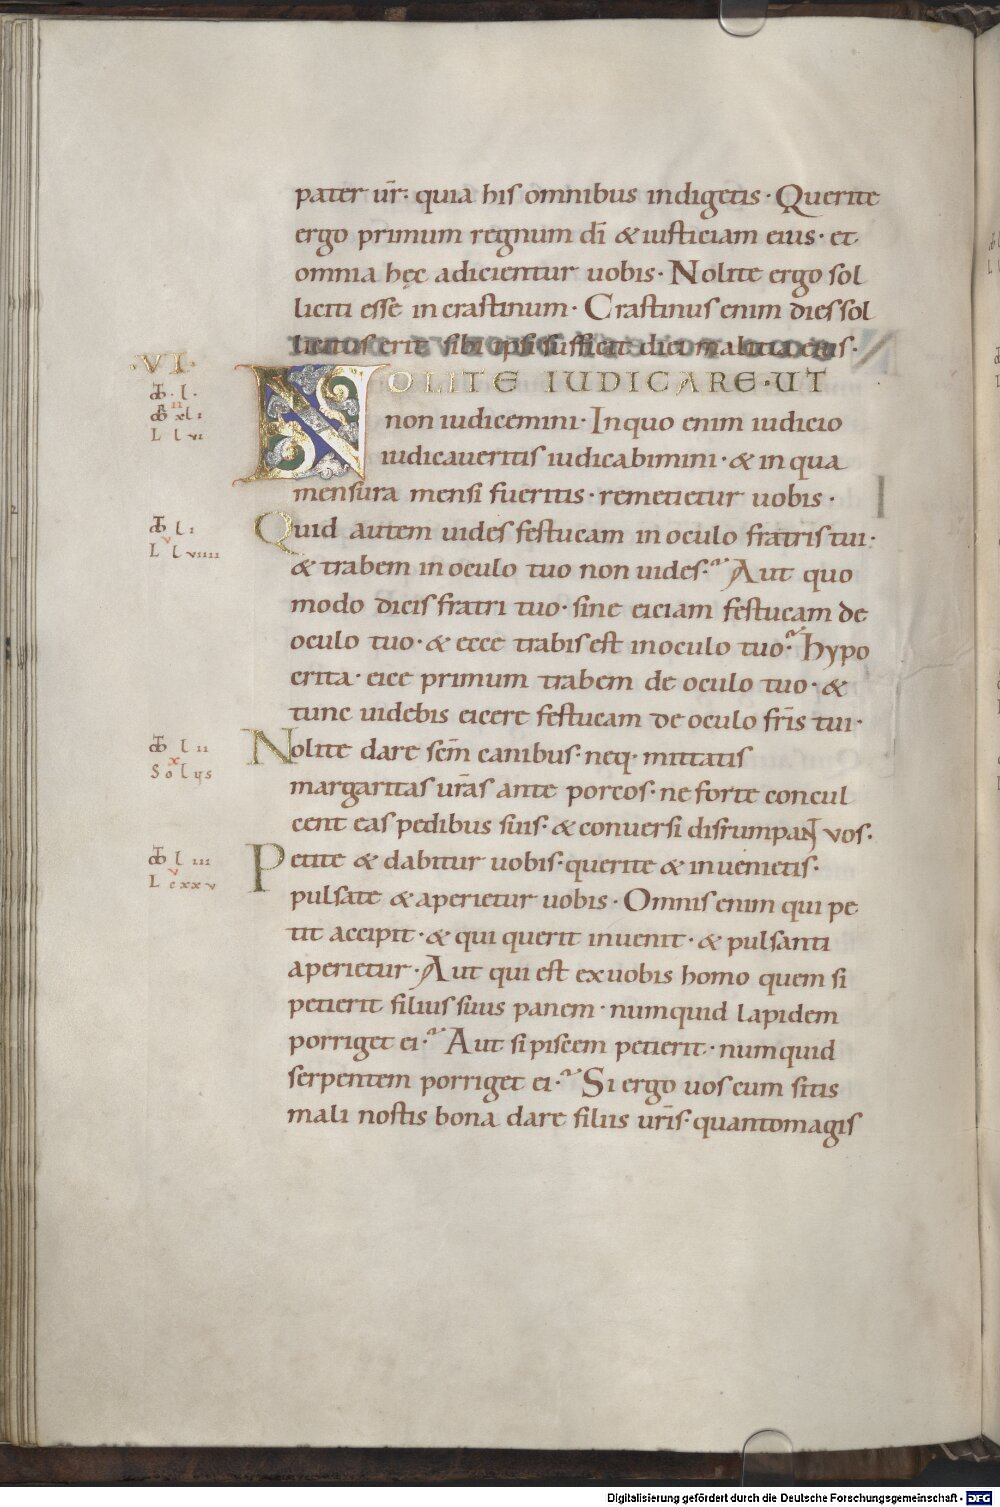 pater ur̄· quia his omnibus indigetis· Querite
ergo primum regnum dī & iusticiam eius· et
omnia hęc adicientur uobis· Nolite ergo sol
liciti esse in crastinum· Crastinus enim dies sol
licitus erit sibi ipsi sufficit diei malitia eius·
·VI·
NOLITE IUDICARE·UT
non iudicemini· In quo enim iudicio
iudicaueritis iudicabimini· & in qua
mensura mensi fueritis· remetietur uobis·
Quid autem uides festucam in oculo fratris tui·
& trabem in oculo tuo non uides· Aut quo
modo dicis fratri tuo· sine eiciam festucam de
oculo tuo· & ecce trabis est in oculo tuo· hypo
crita· eice primum trabem de oculo tuo· &
tunc uidebis eicere festucam de oculo fr̄is tui·
Nolite dare sc̄m canibus· neq· mittatis
margaritas ur̄as ante porcos· ne forte concul
cent eas pedibus suis· & conuersi disrumpant vos·
Petite & dabitur uobis· querite & inuenietis·
pulsate & aperietur uobis· Omnis enim qui pe
tit accipit· & qui querit inuenit· & pulsanti
aperietur· Aut qui est ex uobis homo quem si
petierit filius suus panem· numquid lapidem
porriget ei· Aut si piscem petierit· numquid
serpentem porriget ei· Si ergo uos cum sitis
mali nostis bona dare filiis ur̄is· quanto magis
Digitalisierung gefördert durch die Deutsche Forschungsgemeinschaft - DFG